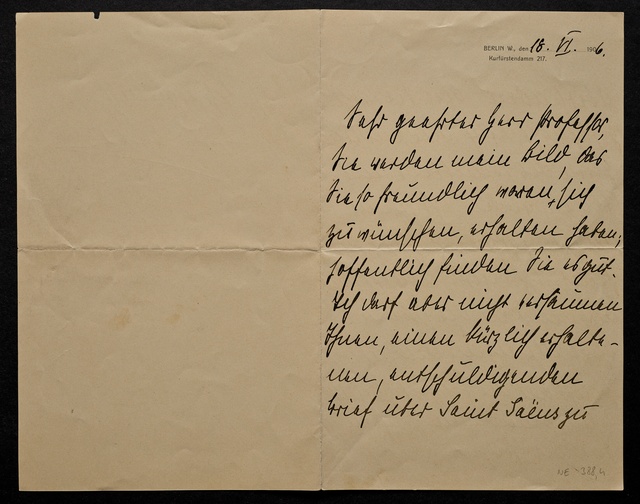 BERLIN W., den 18. VI. 1906.
Kurfürstendamm 217.
Sehr geehrter Herr Professor,
Sie werden mein Bild, das
Sie so freundlich waren, sich
zu wünschen, erhalten haben;
hoffentlich finden Sie es gut.
Ich darf aber nicht versäumen
Ihnen, einen kürzlich erhalte-
nen, entschuldigenden
Brief über Saint Saëns zu
NE 388,4